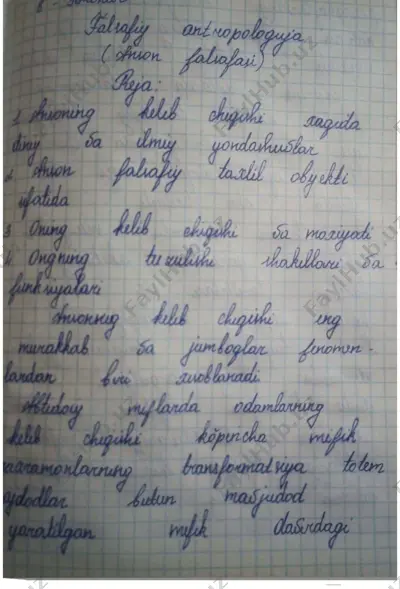 Falsafiy antropologiya
(Inson falsafasi)
Reja:
1 Insonning kelib chiqishi xaqida
diniy va ilmiy yondashuvlar
2 Inson falsafiy taxlil obyekti
sifatida
3 Ongning kelib chiqishi va moxiyati
4 Ongning tuzulishi shakllari va
funksiyalari
Insonning kelib chiqishi eng
murakkab va jumboqlar fenomen-
lardan biri xisoblanadi
Ibtidoiy miflarda odamlarning
kelib chiqishi köpincha mifik
qaxramonlarning transformatsiya totem
ajdodlar butun mavjudod
yaratilgan mifik davrdagi
FaylHub.uz